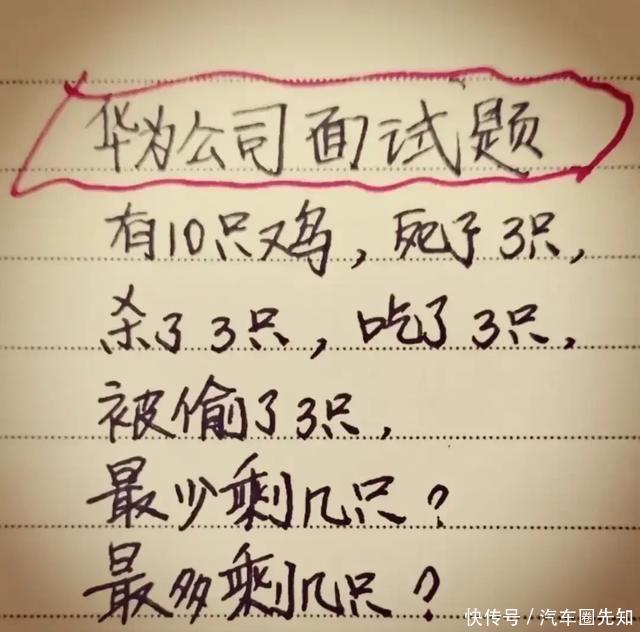 华为公司面试题
有10只鸡，死了3只，
杀了3只，吃了3只，
被偷了3只，
最少剩几只？
最多剩几只？
快传号／汽车圈先知